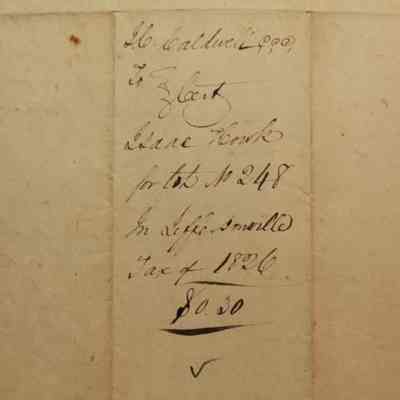 Caldwell
To
Isaac Howk
for lot No 248
In Jeffersonville
Tax of 1826
$0.30